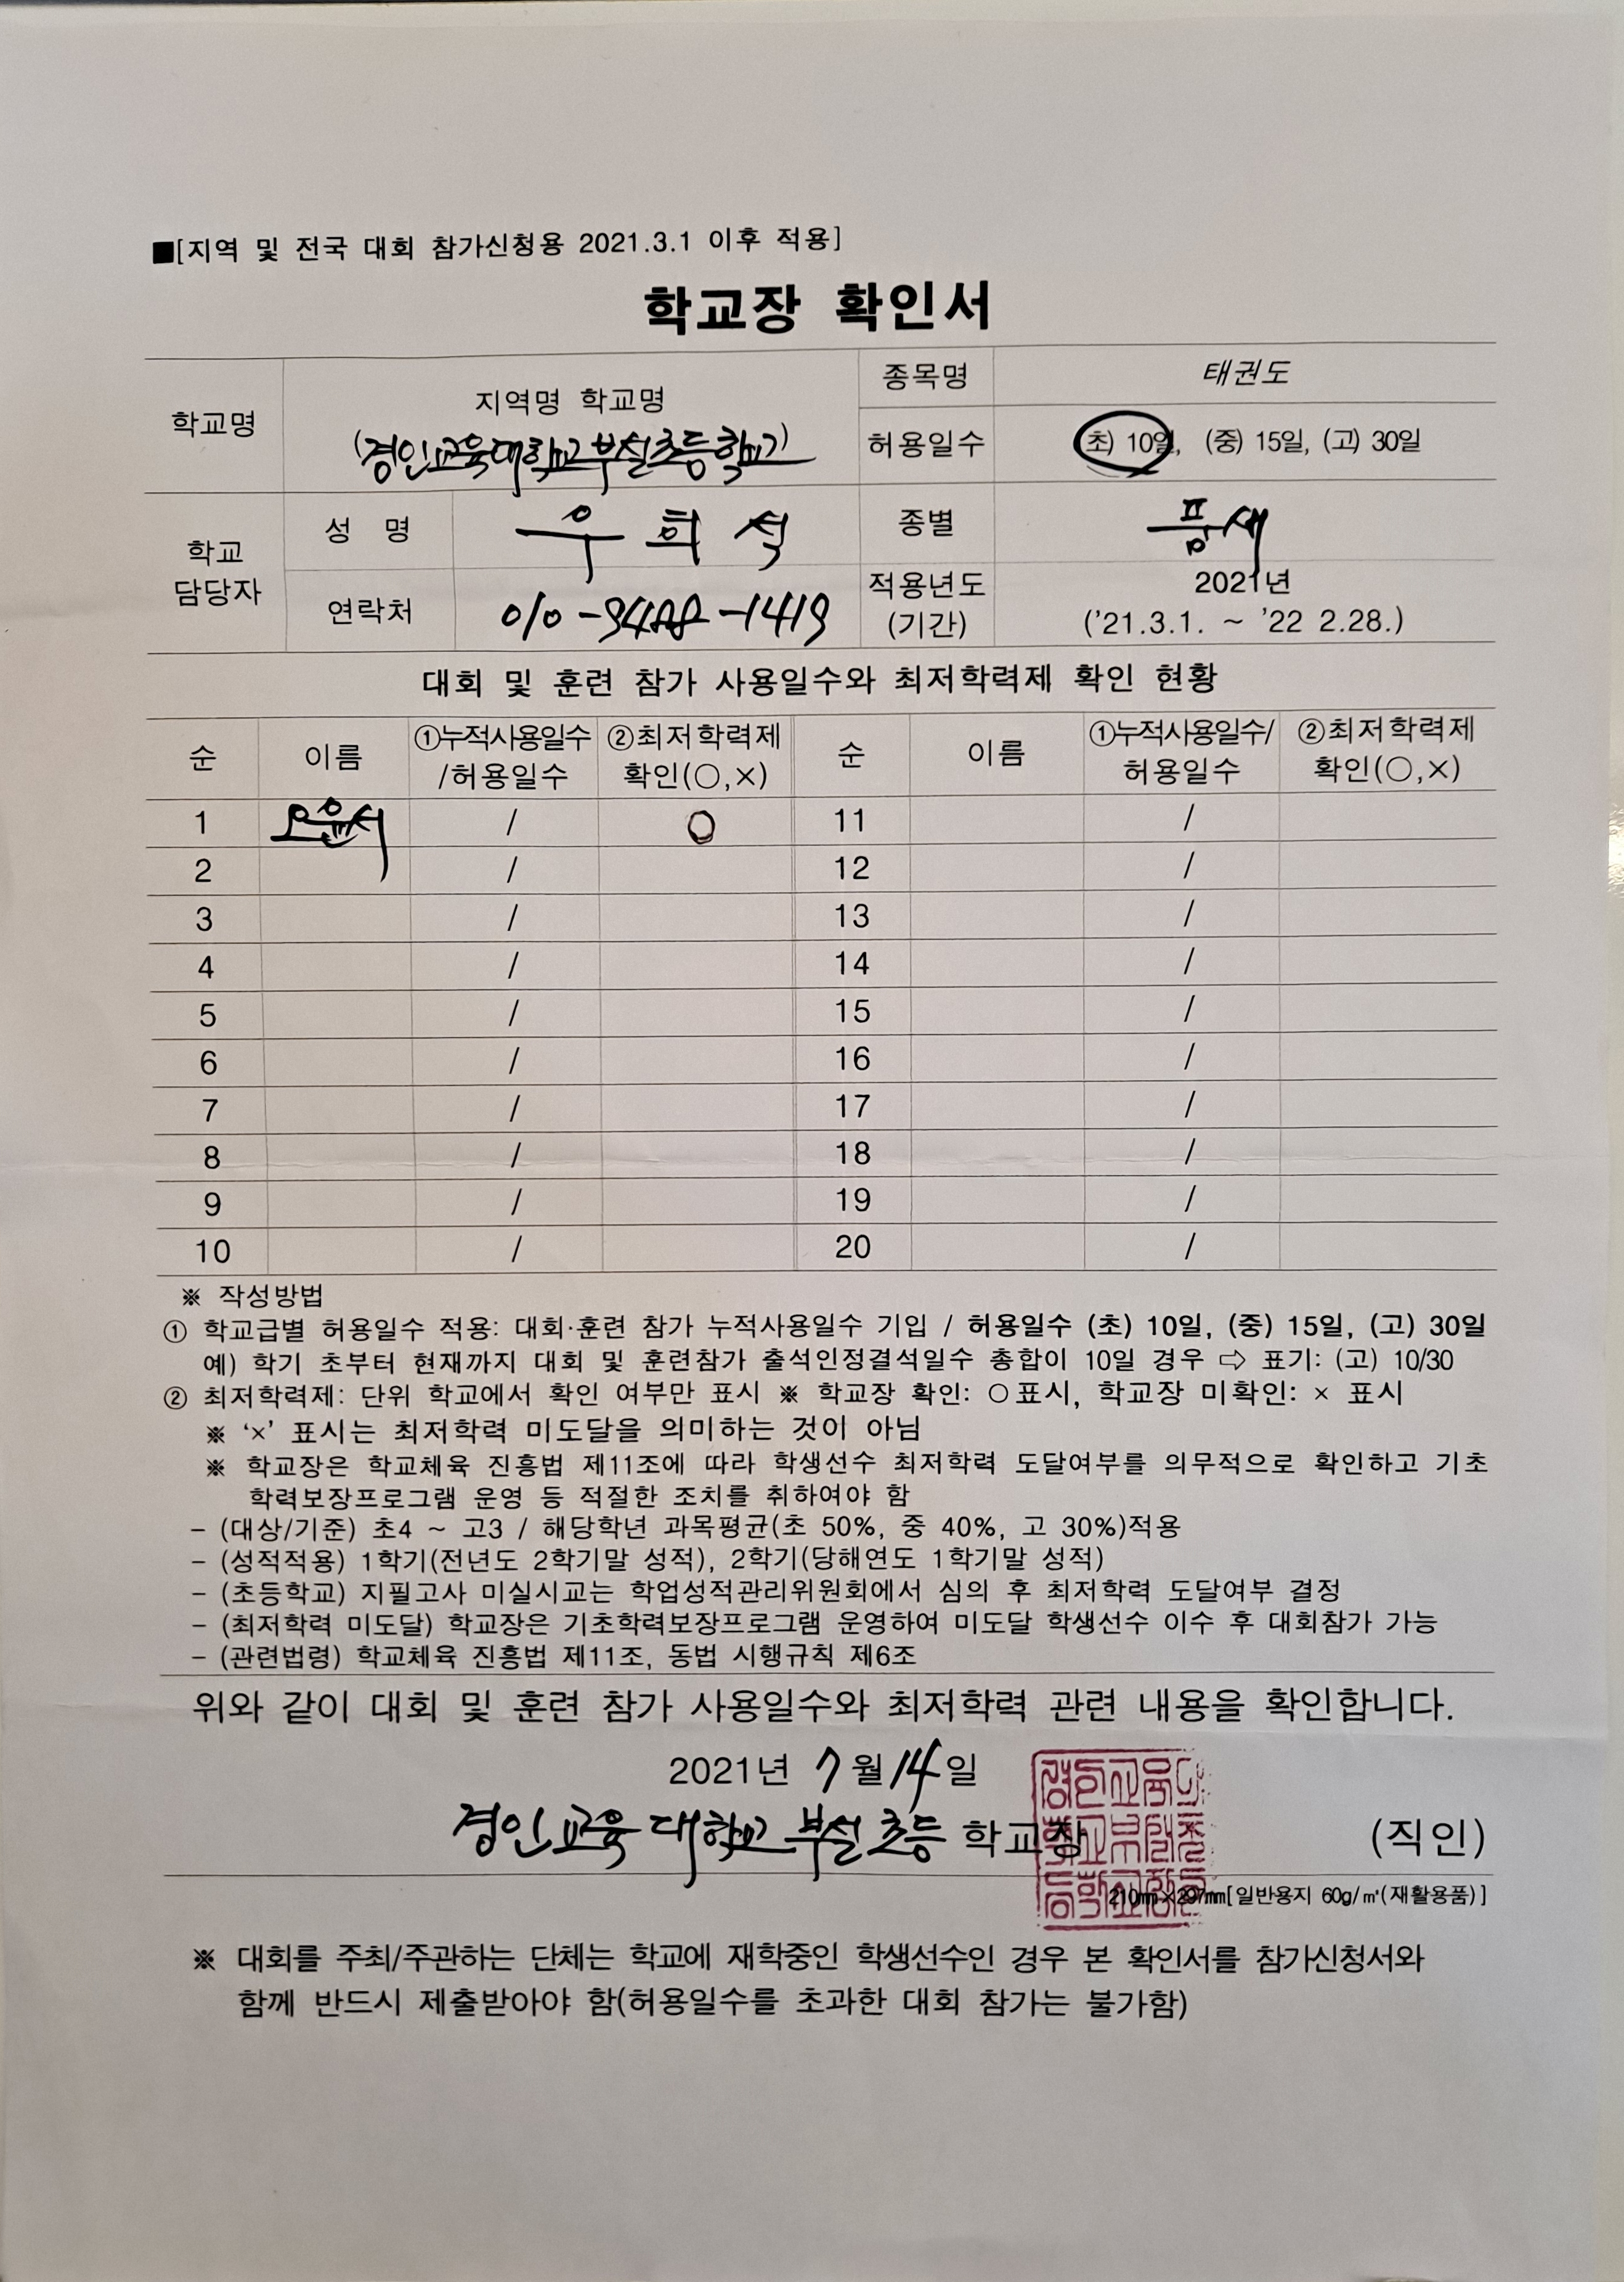 ■[지역 및 전국 대회 참가신청용 2021.3.1 이후 적용]
학교장 확인서
학교명
지역명 학교명
(경인교육대학교부설초등학교)
종목명
태권도
허용일수
초) 10일, (중) 15일, (고) 30일
학교
담당자
성 명
우희석
종별
품새
연락처
010-9488-1419
적용년도
(기간)
2021년
('21.3.1. ~ '22 2.28.)
대회 및 훈련 참가 사용일수와 최저학력제 확인 현황
순 이름 ①누적사용일수 /허용일수 ②최저학력제 확인(○,×) 순 이름 ①누적사용일수/ 허용일수 ②최저학력제 확인(○,×)
1 오윤서 / ○ 11 /
2 / 12 /
3 / 13 /
4 / 14 /
5 / 15 /
6 / 16 /
7 / 17 /
8 / 18 /
9 / 19 /
10 / 20 /
※ 작성방법
① 학교급별 허용일수 적용: 대회·훈련 참가 누적사용일수 기입 / 허용일수 (초) 10일, (중) 15일, (고) 30일
예) 학기 초부터 현재까지 대회 및 훈련참가 출석인정결석일수 총합이 10일 경우 ⇨ 표기: (고) 10/30
② 최저학력제: 단위 학교에서 확인 여부만 표시 ※ 학교장 확인: ○표시, 학교장 미확인: × 표시
※ '×' 표시는 최저학력 미도달을 의미하는 것이 아님
※ 학교장은 학교체육 진흥법 제11조에 따라 학생선수 최저학력 도달여부를 의무적으로 확인하고 기초
학력보장프로그램 운영 등 적절한 조치를 취하여야 함
- (대상/기준) 초4 ~ 고3 / 해당학년 과목평균(초 50%, 중 40%, 고 30%)적용
- (성적적용) 1학기(전년도 2학기말 성적), 2학기(당해연도 1학기말 성적)
- (초등학교) 지필고사 미실시교는 학업성적관리위원회에서 심의 후 최저학력 도달여부 결정
- (최저학력 미도달) 학교장은 기초학력보장프로그램 운영하여 미도달 학생선수 이수 후 대회참가 가능
- (관련법령) 학교체육 진흥법 제11조, 동법 시행규칙 제6조
위와 같이 대회 및 훈련 참가 사용일수와 최저학력 관련 내용을 확인합니다.
2021년 7월 14일
경인교육대학교부설초등 학교장 (직인)
210㎜×297㎜[일반용지 60g/㎡(재활용품)]
※ 대회를 주최/주관하는 단체는 학교에 재학중인 학생선수인 경우 본 확인서를 참가신청서와
함께 반드시 제출받아야 함(허용일수를 초과한 대회 참가는 불가함)